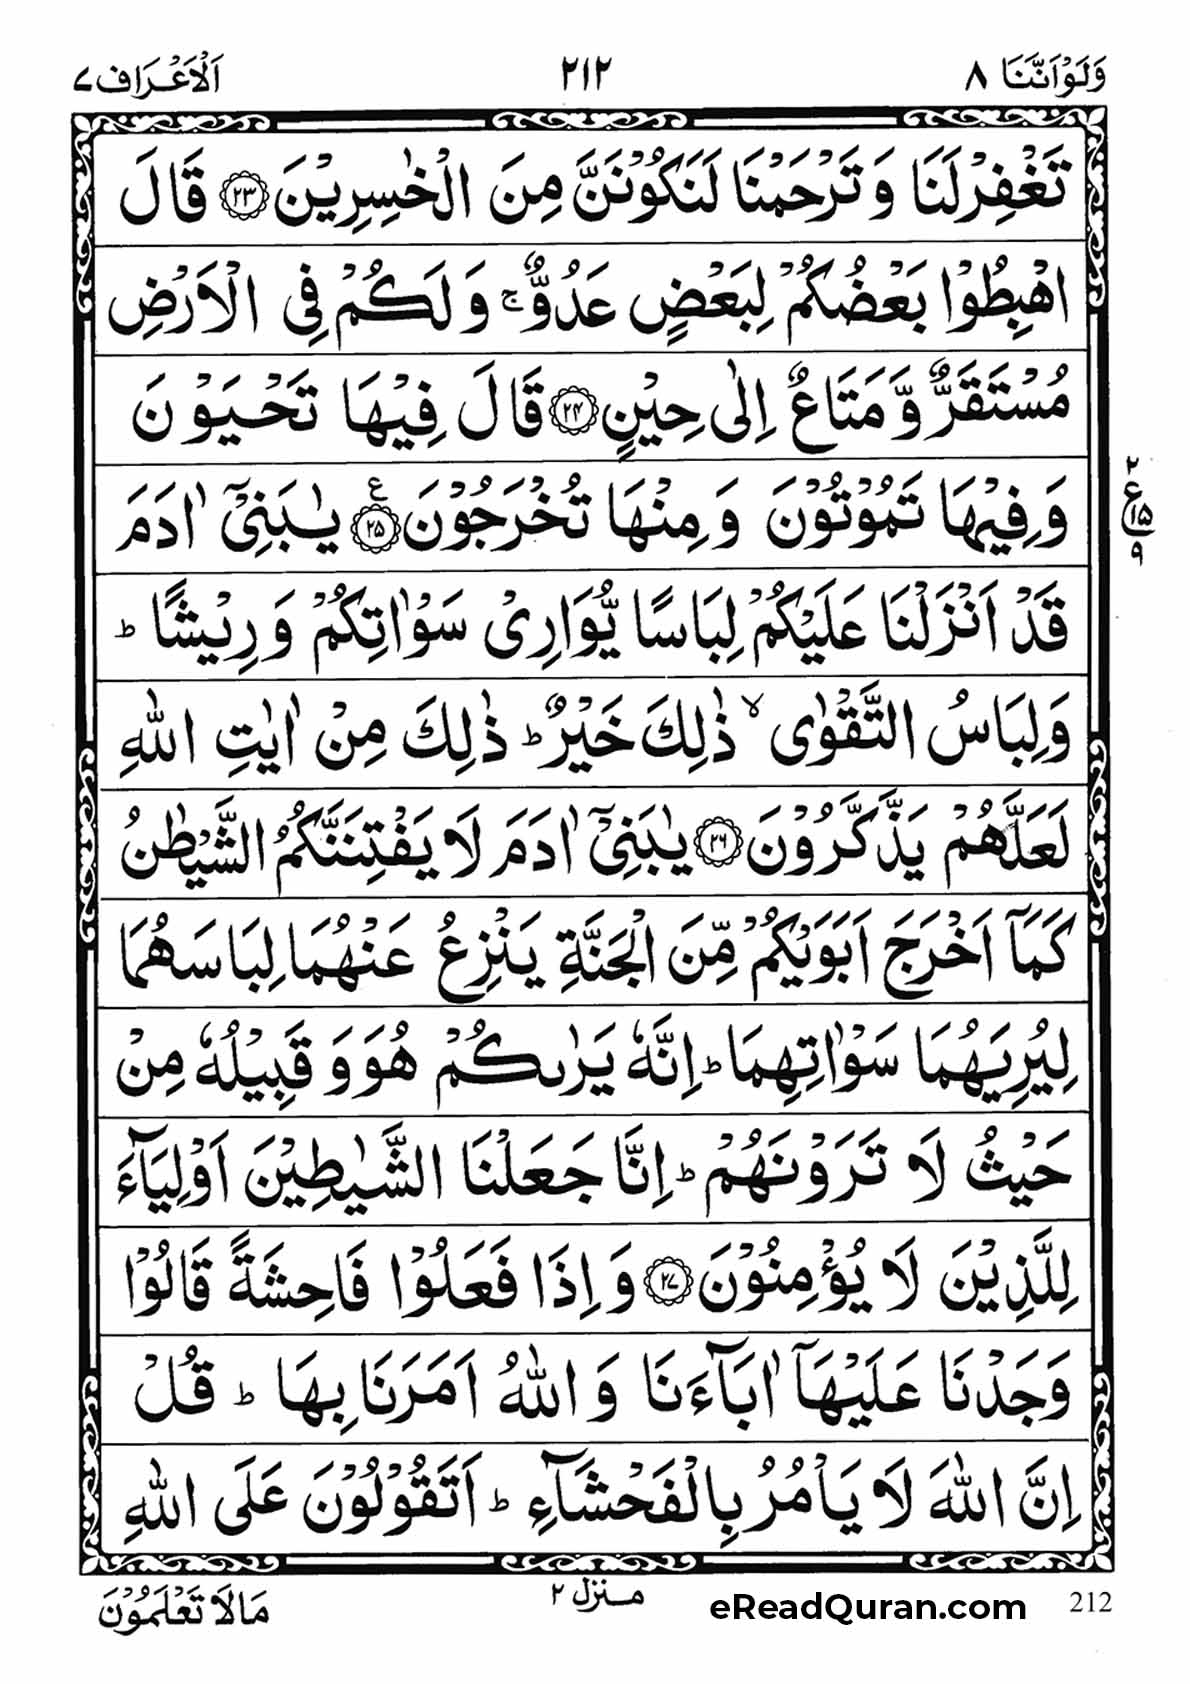 وَلَوْاَنَّنَا ۸
۲۱۲
اَلْاَعْرَاف ۷
تَغْفِرْلَنَا وَ تَرْحَمْنَا لَنَكُوْنَنَّ مِنَ الْخٰسِرِيْنَ ۝۲۳ قَالَ
اهْبِطُوْا بَعْضُكُمْ لِبَعْضٍ عَدُوٌّ ۚ وَ لَكُمْ فِى الْاَرْضِ
مُسْتَقَرٌّ وَّ مَتَاعٌ اِلٰى حِيْنٍ ۝۲۴ قَالَ فِيْهَا تَحْيَوْنَ
وَ فِيْهَا تَمُوْتُوْنَ وَ مِنْهَا تُخْرَجُوْنَ ۝۲۵ ع يٰبَنِىْۤ اٰدَمَ
۲
ع
۱۵
۹
قَدْ اَنْزَلْنَا عَلَيْكُمْ لِبَاسًا يُّوَارِىْ سَوْاٰتِكُمْ وَ رِيْشًا ؕ
وَ لِبَاسُ التَّقْوٰى ۙ ذٰلِكَ خَيْرٌ ؕ ذٰلِكَ مِنْ اٰيٰتِ اللّٰهِ
لَعَلَّهُمْ يَذَّكَّرُوْنَ ۝۲۶ يٰبَنِىْۤ اٰدَمَ لَا يَفْتِنَنَّكُمُ الشَّيْطٰنُ
كَمَاۤ اَخْرَجَ اَبَوَيْكُمْ مِّنَ الْجَنَّةِ يَنْزِعُ عَنْهُمَا لِبَاسَهُمَا
لِيُرِيَهُمَا سَوْاٰتِهِمَا ؕ اِنَّهٗ يَرٰىكُمْ هُوَ وَ قَبِيْلُهٗ مِنْ
حَيْثُ لَا تَرَوْنَهُمْ ؕ اِنَّا جَعَلْنَا الشَّيٰطِيْنَ اَوْلِيَآءَ
لِلَّذِيْنَ لَا يُؤْمِنُوْنَ ۝۲۷ وَ اِذَا فَعَلُوْا فَاحِشَةً قَالُوْا
وَجَدْنَا عَلَيْهَاۤ اٰبَآءَنَا وَ اللّٰهُ اَمَرَنَا بِهَا ؕ قُلْ
اِنَّ اللّٰهَ لَا يَاْمُرُ بِالْفَحْشَآءِ ؕ اَتَقُوْلُوْنَ عَلَى اللّٰهِ
مَا لَا تَعْلَمُوْنَ
منزل ۲
eReadQuran.com
212